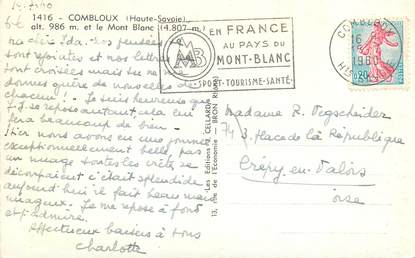 14.7.60
1416 - COMBLOUX (Haute-Savoie)
alt. 986 m. et le Mont Blanc (4.807 m.)
EN FRANCE
AU PAYS DU
MONT-BLANC
SPORT-TOURISME-SANTÉ
MB
COMBLOUX
16
1960
Hte
0,20
Les Editions CELLARD
13, rue de l'Economie - BRON (Rhône)
Ida. Nos pensées
sont rejointes et nos lettres
sont croisées mais tu ne
donnes guère de nouvelles de
chacun! Je suis heureuse que
se repose autant, cela lui
fera beaucoup de bien.
Hier nous avons eu une journée
exceptionnellement belle, pas
un nuage toutes les crêtes se
découpaient c'était splendide
aujourd'hui il fait beau mais
nuageux. Je me repose à fond
et j'admire.
Affectueux baisers à tous
Charlotte
Madame R. Degscheider
74 3, Place de la République
Crépy-en-Valois
Oise